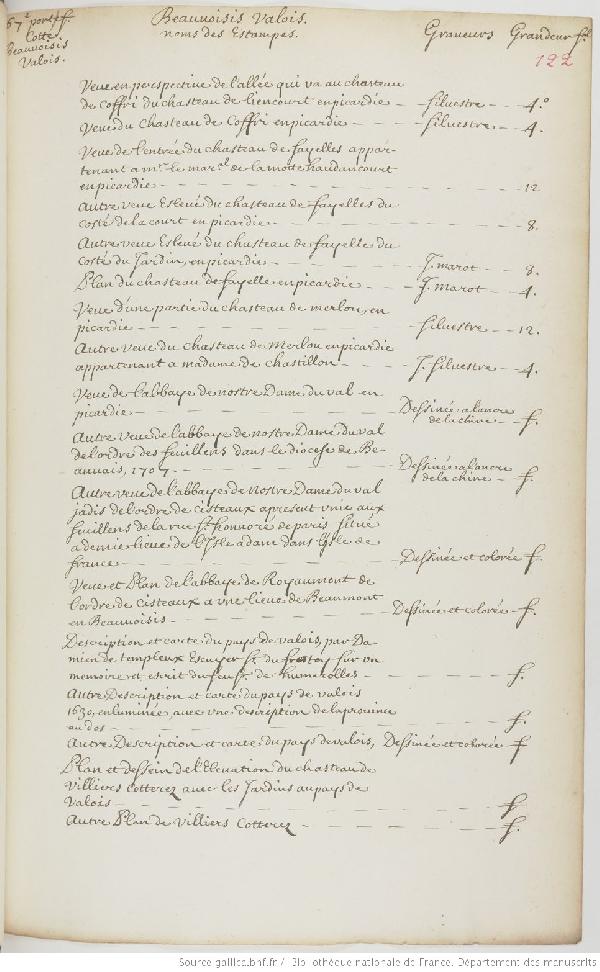 67e portf.
Cotté
Beauvoisis
Valois.
Beauvoisis Valois.
noms des Estampes.
Graveurs Grandeur fl
122
Veue en perspective de l'allée qui va au chasteau
de Coffri du chasteau de liencourt en picardie — silvestre — 4.o
Veue du Chasteau de Coffri en picardie — silvestre — 4.
Veue de l'entrée du chasteau de fayelles appar-
tenant a mr. le marcl. de la motte haudancourt
en picardie — 12
Autre veue Eslevé du chasteau de fayelles du
costé de la court en picardie — 8.
Autre veue Eslevé du chasteau de fayelle du
Costé du Jardin, en picardie — J. marot — 8.
Plan du chasteau de fayelle en picardie — J. marot — 4.
Veue d'une partie du chasteau de merlou, en
picardie — silvestre — 12.
Autre Veue du Chasteau de Merlou en picardie
appartenant a madame de chastillon — J. silvestre — 4.
Veue de l'abbaye de nostre Dame du val en
picardie — Dessinée a l'ancre
de la chine — f.
Autre Veue de l'abbaye de nostre Dame du val
de l'ordre des feuillens dans le diocese de Be-
auuais, 1707 — Dessinée a l'ancre
de la chine — f.
Autre veue de l'abbaye de Nostre Dame du val
jadis de l'ordre de cisteaux apresent unie aux
feuillens de la rue St. honnoré de paris situé
a demie lieue de l'Isle adam dans l'isle de
france — Dessinée et colorée f.
Veue et Plan de l'abbaye de Royaumont de
l'ordre de Cisteaux a vne lieue de Beaumont
en Beauvoisis — Dessinée et colorée — f.
Description et carte du pays de valois, par Da-
mien de templeux Escuyer sr. du frestoy sur vn
memoire et escrit du feu sr. de humerolles — f.
Autre Description et carte du pays de valois
1630, enluminée, avec vne description de la province
au dos — f.
Autre Description et carte du pays de valois, Dessinée et colorée f
Plan et dessein de l'Elevation du chasteau de
Villiers Cotterez avec les Jardins au pays de
Valois — f
Autre Plan de Villiers Cotterez — f.
Source gallica.bnf.fr / Bibliothèque nationale de France. Département des manuscrits